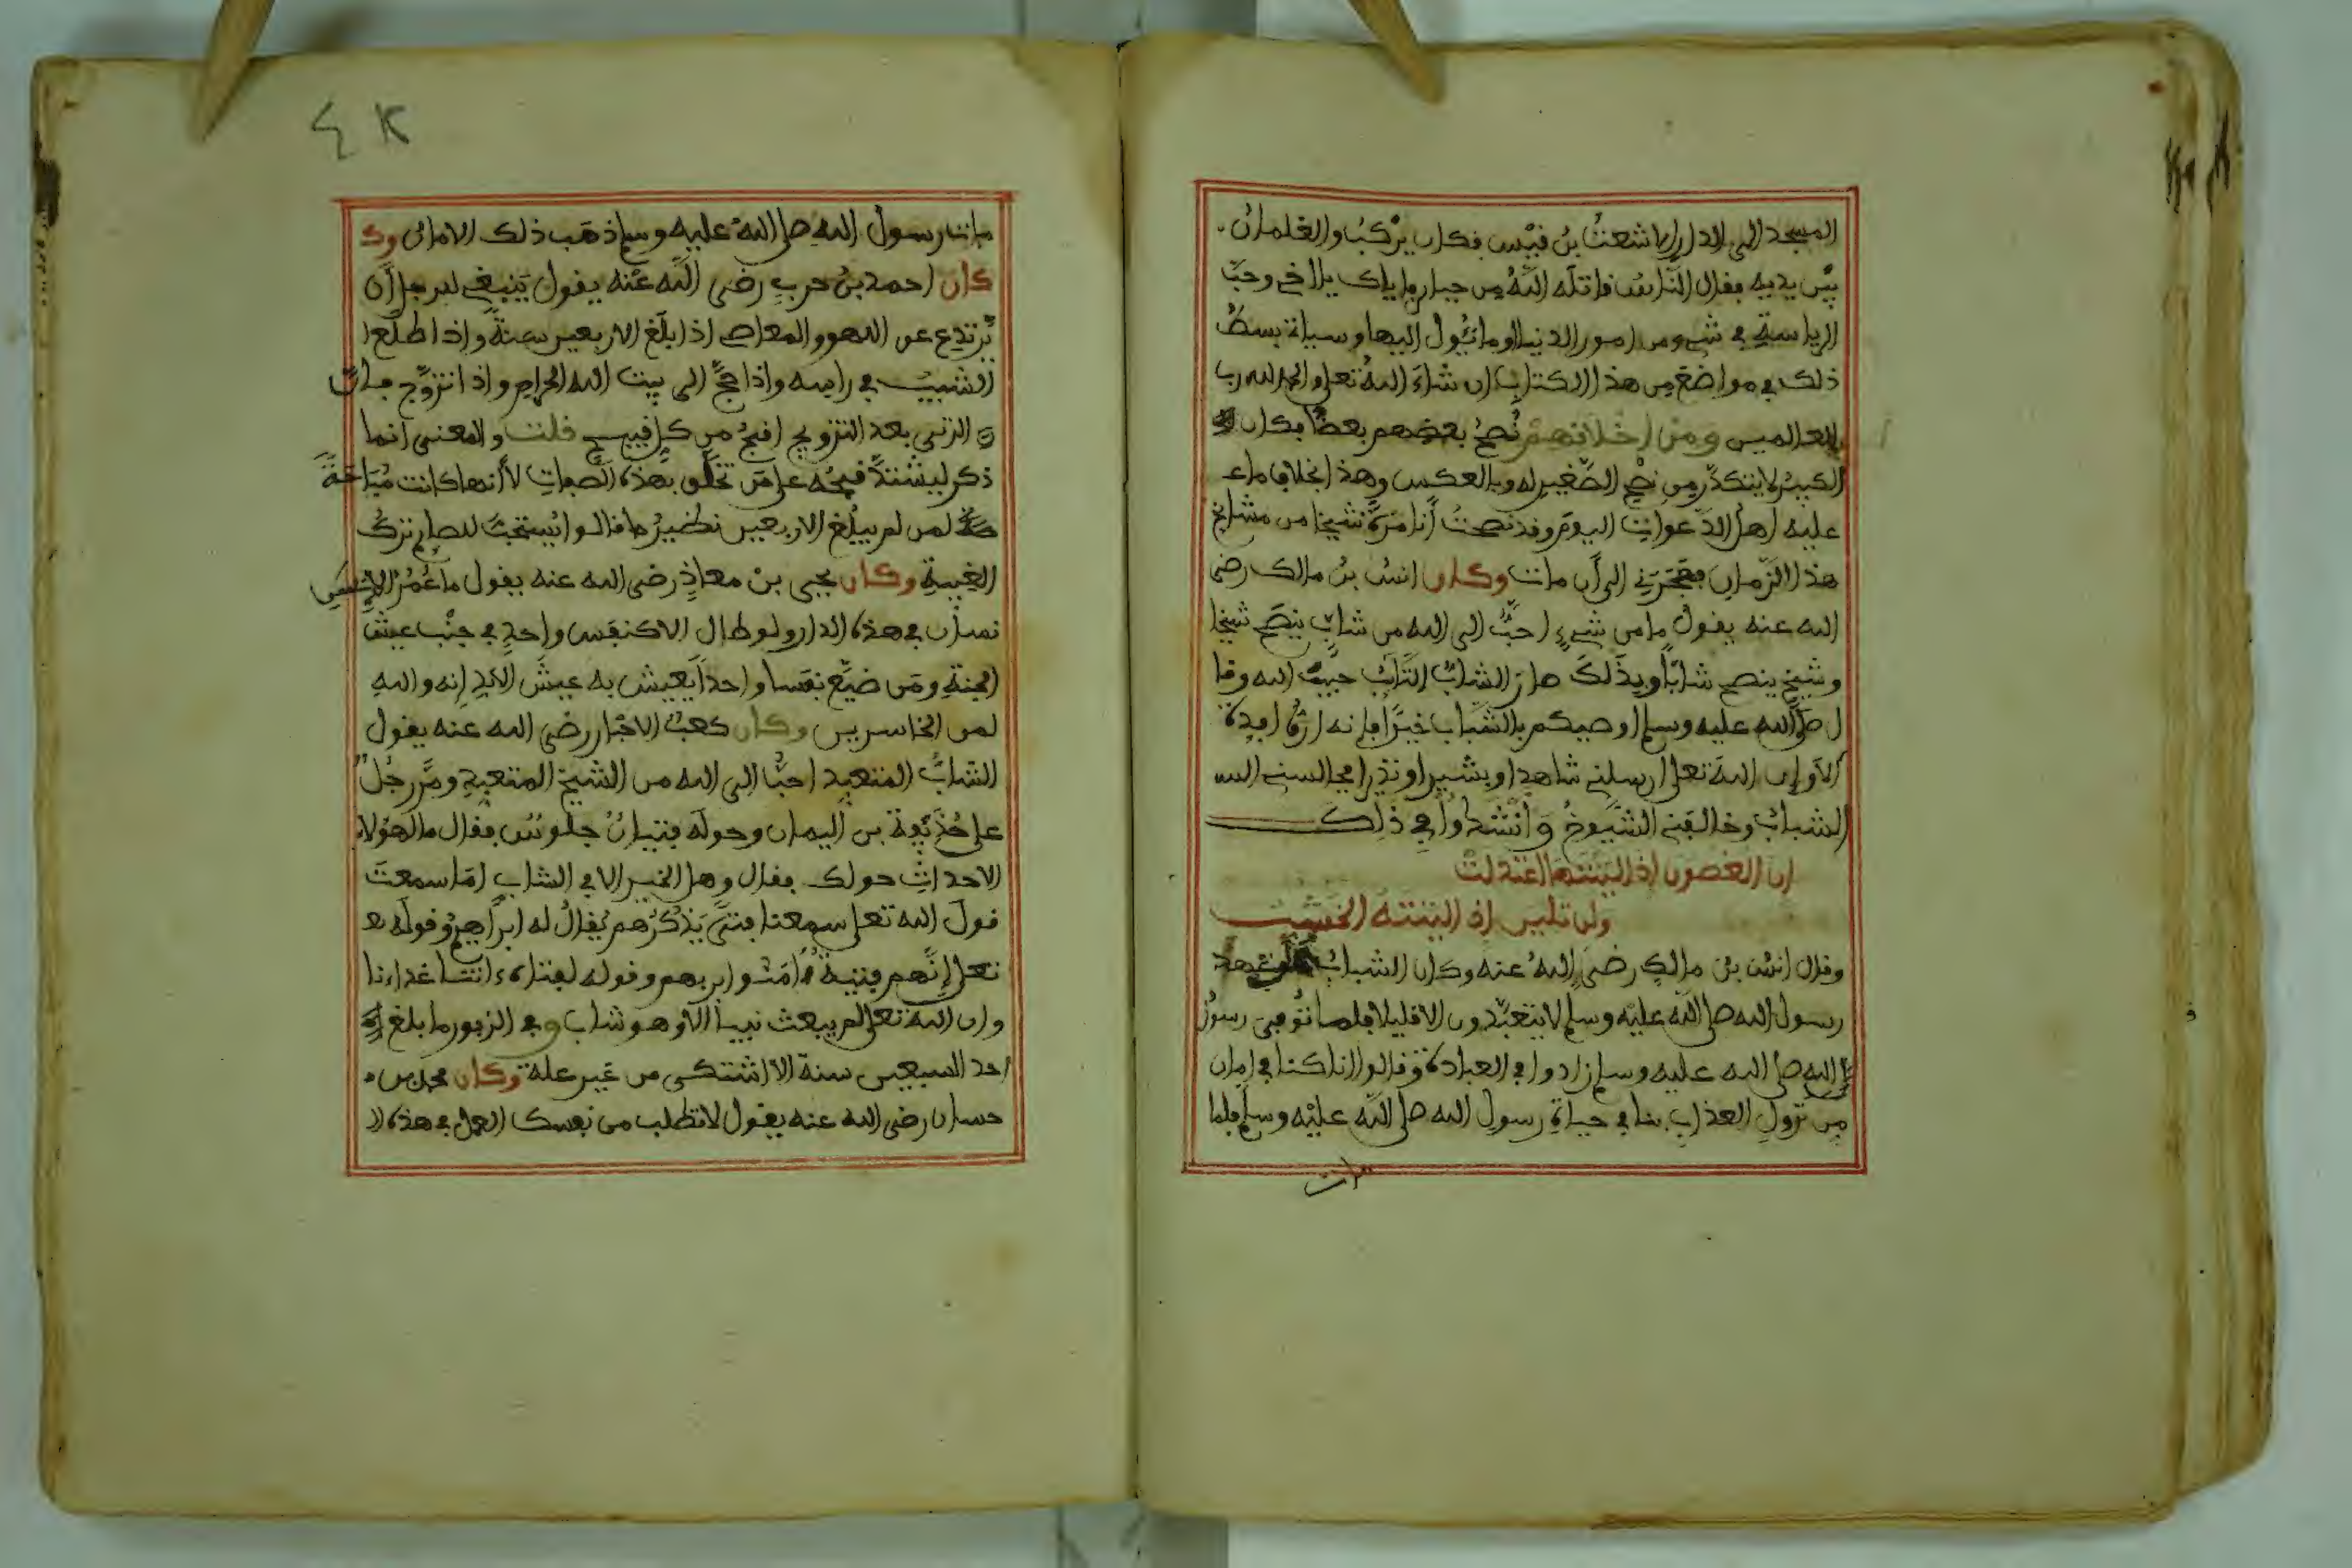 المسجد الى الدار الاشعث بن قيس فكان يركب والغلمان
بين يديه فقال الناس قاتله الله من جبار فاياك يا اخي وحب
الرياسة في شيء من امور الدنيا وما يئول اليها وسياتي بسط
ذلك في مواضع من هذا الكتاب ان شاء الله تعلى والحمد لله رب
العالمين ومن اخلاقهم نصح بعضهم بعضا فكان
الكبير لا يتكدر من نصح الصغير له وبالعكس وهذا بخلاف ما ع
عليه اهل الدعوات اليوم وقد نصحت أنا مرة شيخا من مشايخ
هذا الزمان فهجرني الى أن مات وكان انس بن مالك رضى
الله عنه يقول ما من شيء احب الى الله من شاب ينصح شيخا
وشيخ ينصح شابا وبذلك صار الشاب التائب حبيب الله وقا
ل صلى الله عليه وسلم اوصيكم بالشباب خيرا فإنه ارق افيدة
ألا وإن الله تعلى ارسلنى شاهدا وبشيرا ونذيرا فجالسنى
الشباب وخالفنى الشيوخ وأنشدوا في ذلك
إن الغصون إذا لينتها اعتدلت
ولن تلين إذا لينته الخشب
وقال انس بن مالك رضى الله عنه وكان الشباب عهد
رسول الله صلى الله عليه وسلم لا يتعبدون الا قليلا فلما توفى رسول
الله صلى الله عليه وسلم زادوا في العبادة وقالوا انا كنا في امان
من نزول العذاب بنا في حياة رسول الله صلى الله عليه وسلم فلما
مات
مات رسول الله صلى الله عليه وسلم ذهب ذلك الامان وك
كان احمد بن حرب رضى الله عنه يقول ينبغي للرجل أن
يرتدع عن اللهو والمعاصى اذا بلغ الاربعين سنة واذا طلع ا
الشيب في راسه واذا حج الى بيت الله الحرام واذا تزوج فان
الزنى بعد التزويج اقبح من كل قبيح قلت والمعنى انما
ذكر ليشتد قبحه على من تخلق بهذه الصفات لا أنها كانت مباحة
لمن لم يبلغ الاربعين نظير ما قالوا يستحب للصايم ترك
الغيبة وكان يحيى بن معاذ رضى الله عنه يقول ما عمر الا
نسان في هذه الدار ولو طال الا كنفس واحد في جنب عيش
الجنة ومن ضيع نفسا واحدا يعيش به عيش الابد إنه والله
لمن الخاسرين وكان كعب الاحبار رضى الله عنه يقول
الشاب المتعبد احب الى الله من الشيخ المتعبد ومر رجل
على حذيفة بن اليمان وحوله فتيان جلوس فقال ما لهؤلاء
الاحداث حولك فقال وهل الخير الا في الشاب اما سمعت
قول الله تعلى سمعنا فتى يذكرهم يقال له ابراهيم وقوله
تعلى إنهم فتية ءامنوا بربهم وقوله لفتاه ءاتنا غداءنا
وان الله تعلى لم يبعث نبيا الا وهو شاب وفي الزبور ما بلغ
احد السبعين سنة الا اشتكى من غير علة وكان محمد بن
حسان رضى الله عنه يقول لا تطلب من نفسك العمل في هذه ال